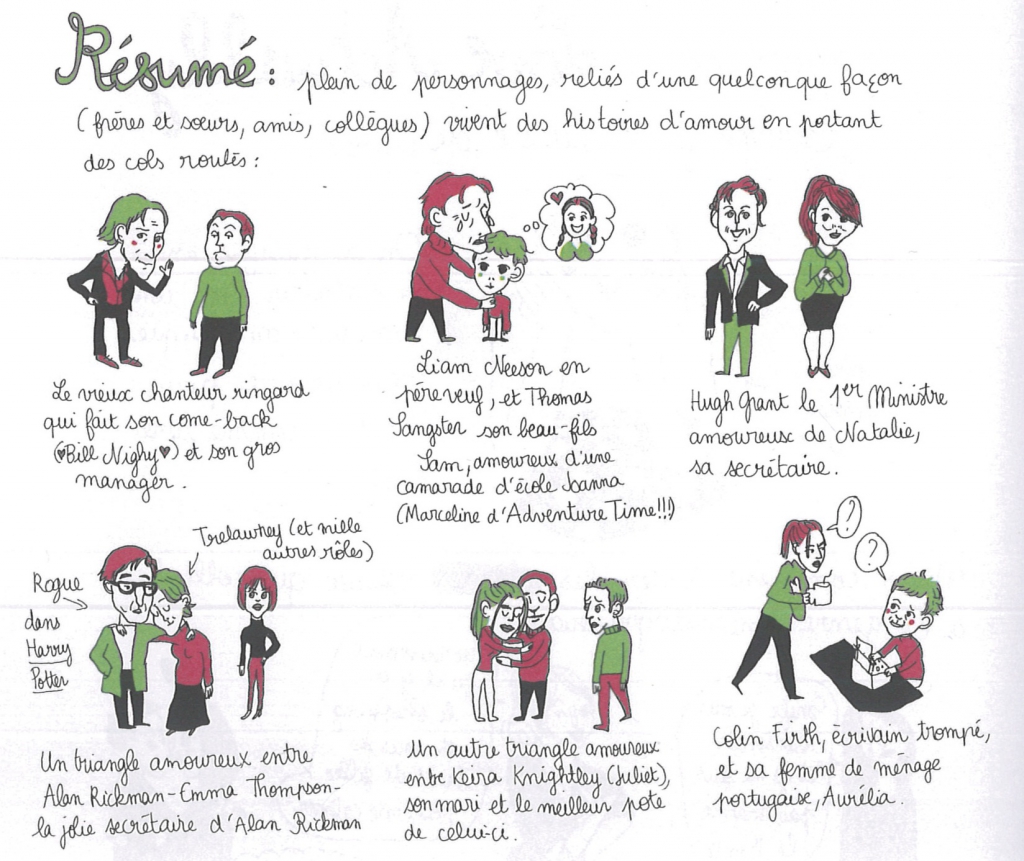 Résumé : plein de personnages, reliés d'une quelconque façon
(frères et sœurs, amis, collègues) vivent des histoires d'amour en portant
des cols roulés :
Le vieux chanteur ringard
qui fait son come-back
(♥Bill Nighy♥) et son gros
manager.
Liam Neeson en
père veuf, et Thomas
Sangster son beau-fils
Sam, amoureux d'une
camarade d'école Joanna
(Marceline d'Adventure Time!!!)
Hugh Grant le 1er Ministre
amoureux de Natalie,
sa secrétaire.
Trelawney (et mille
autres rôles)
Rogue
dans
Harry
Potter
Un triangle amoureux entre
Alan Rickman-Emma Thompson-
la jolie secrétaire d'Alan Rickman
Un autre triangle amoureux
entre Keira Knightley (Juliet),
son mari et le meilleur pote
de celui-ci.
?
?
Colin Firth, écrivain trompé,
et sa femme de ménage
portugaise, Aurélia.